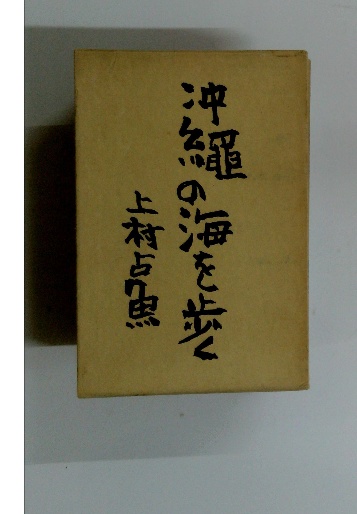 沖繩の海を歩く
上村占魚